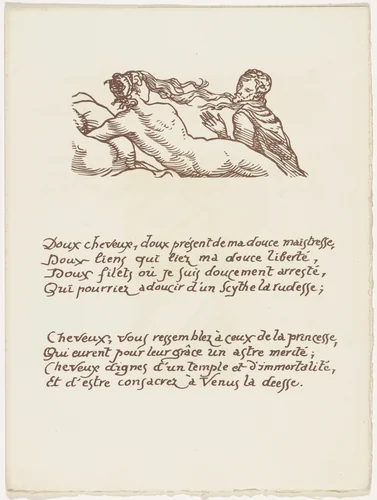 Doux cheveux, doux présent de ma douce maistresse,
Doux liens qui liez ma douce liberté,
Doux filets où je suis doucement arresté,
Qui pourriez adoucir d'un Scythe la rudesse;
Cheveux, vous ressemblez à ceux de la princesse,
Qui eurent pour leur grâce un astre mérité;
Cheveux dignes d'un temple et d'immortalité,
Et d'estre consacrez à Venus la deesse.